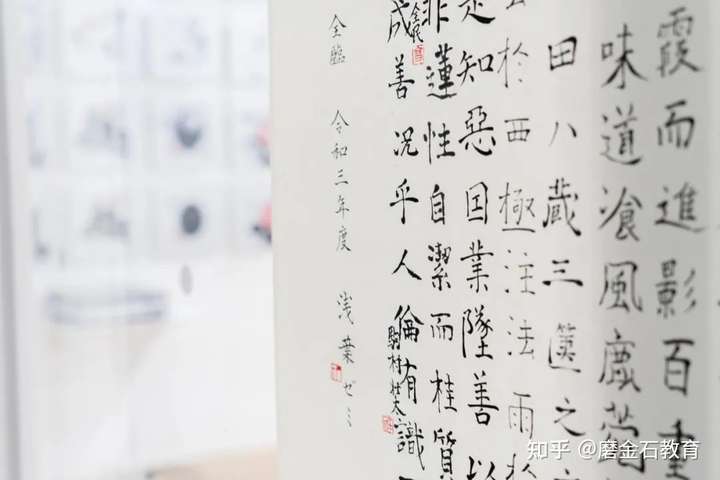 霞而進影百重
味道飡風鹿
田八藏三篋之
於西極注法雨於
是知惡因業墜善以
非蓮性自潔而桂質
成善況乎人倫有識
駒村壮太
全臨 令和三年度 浅葉ゼミ
知乎 @磨金石教育